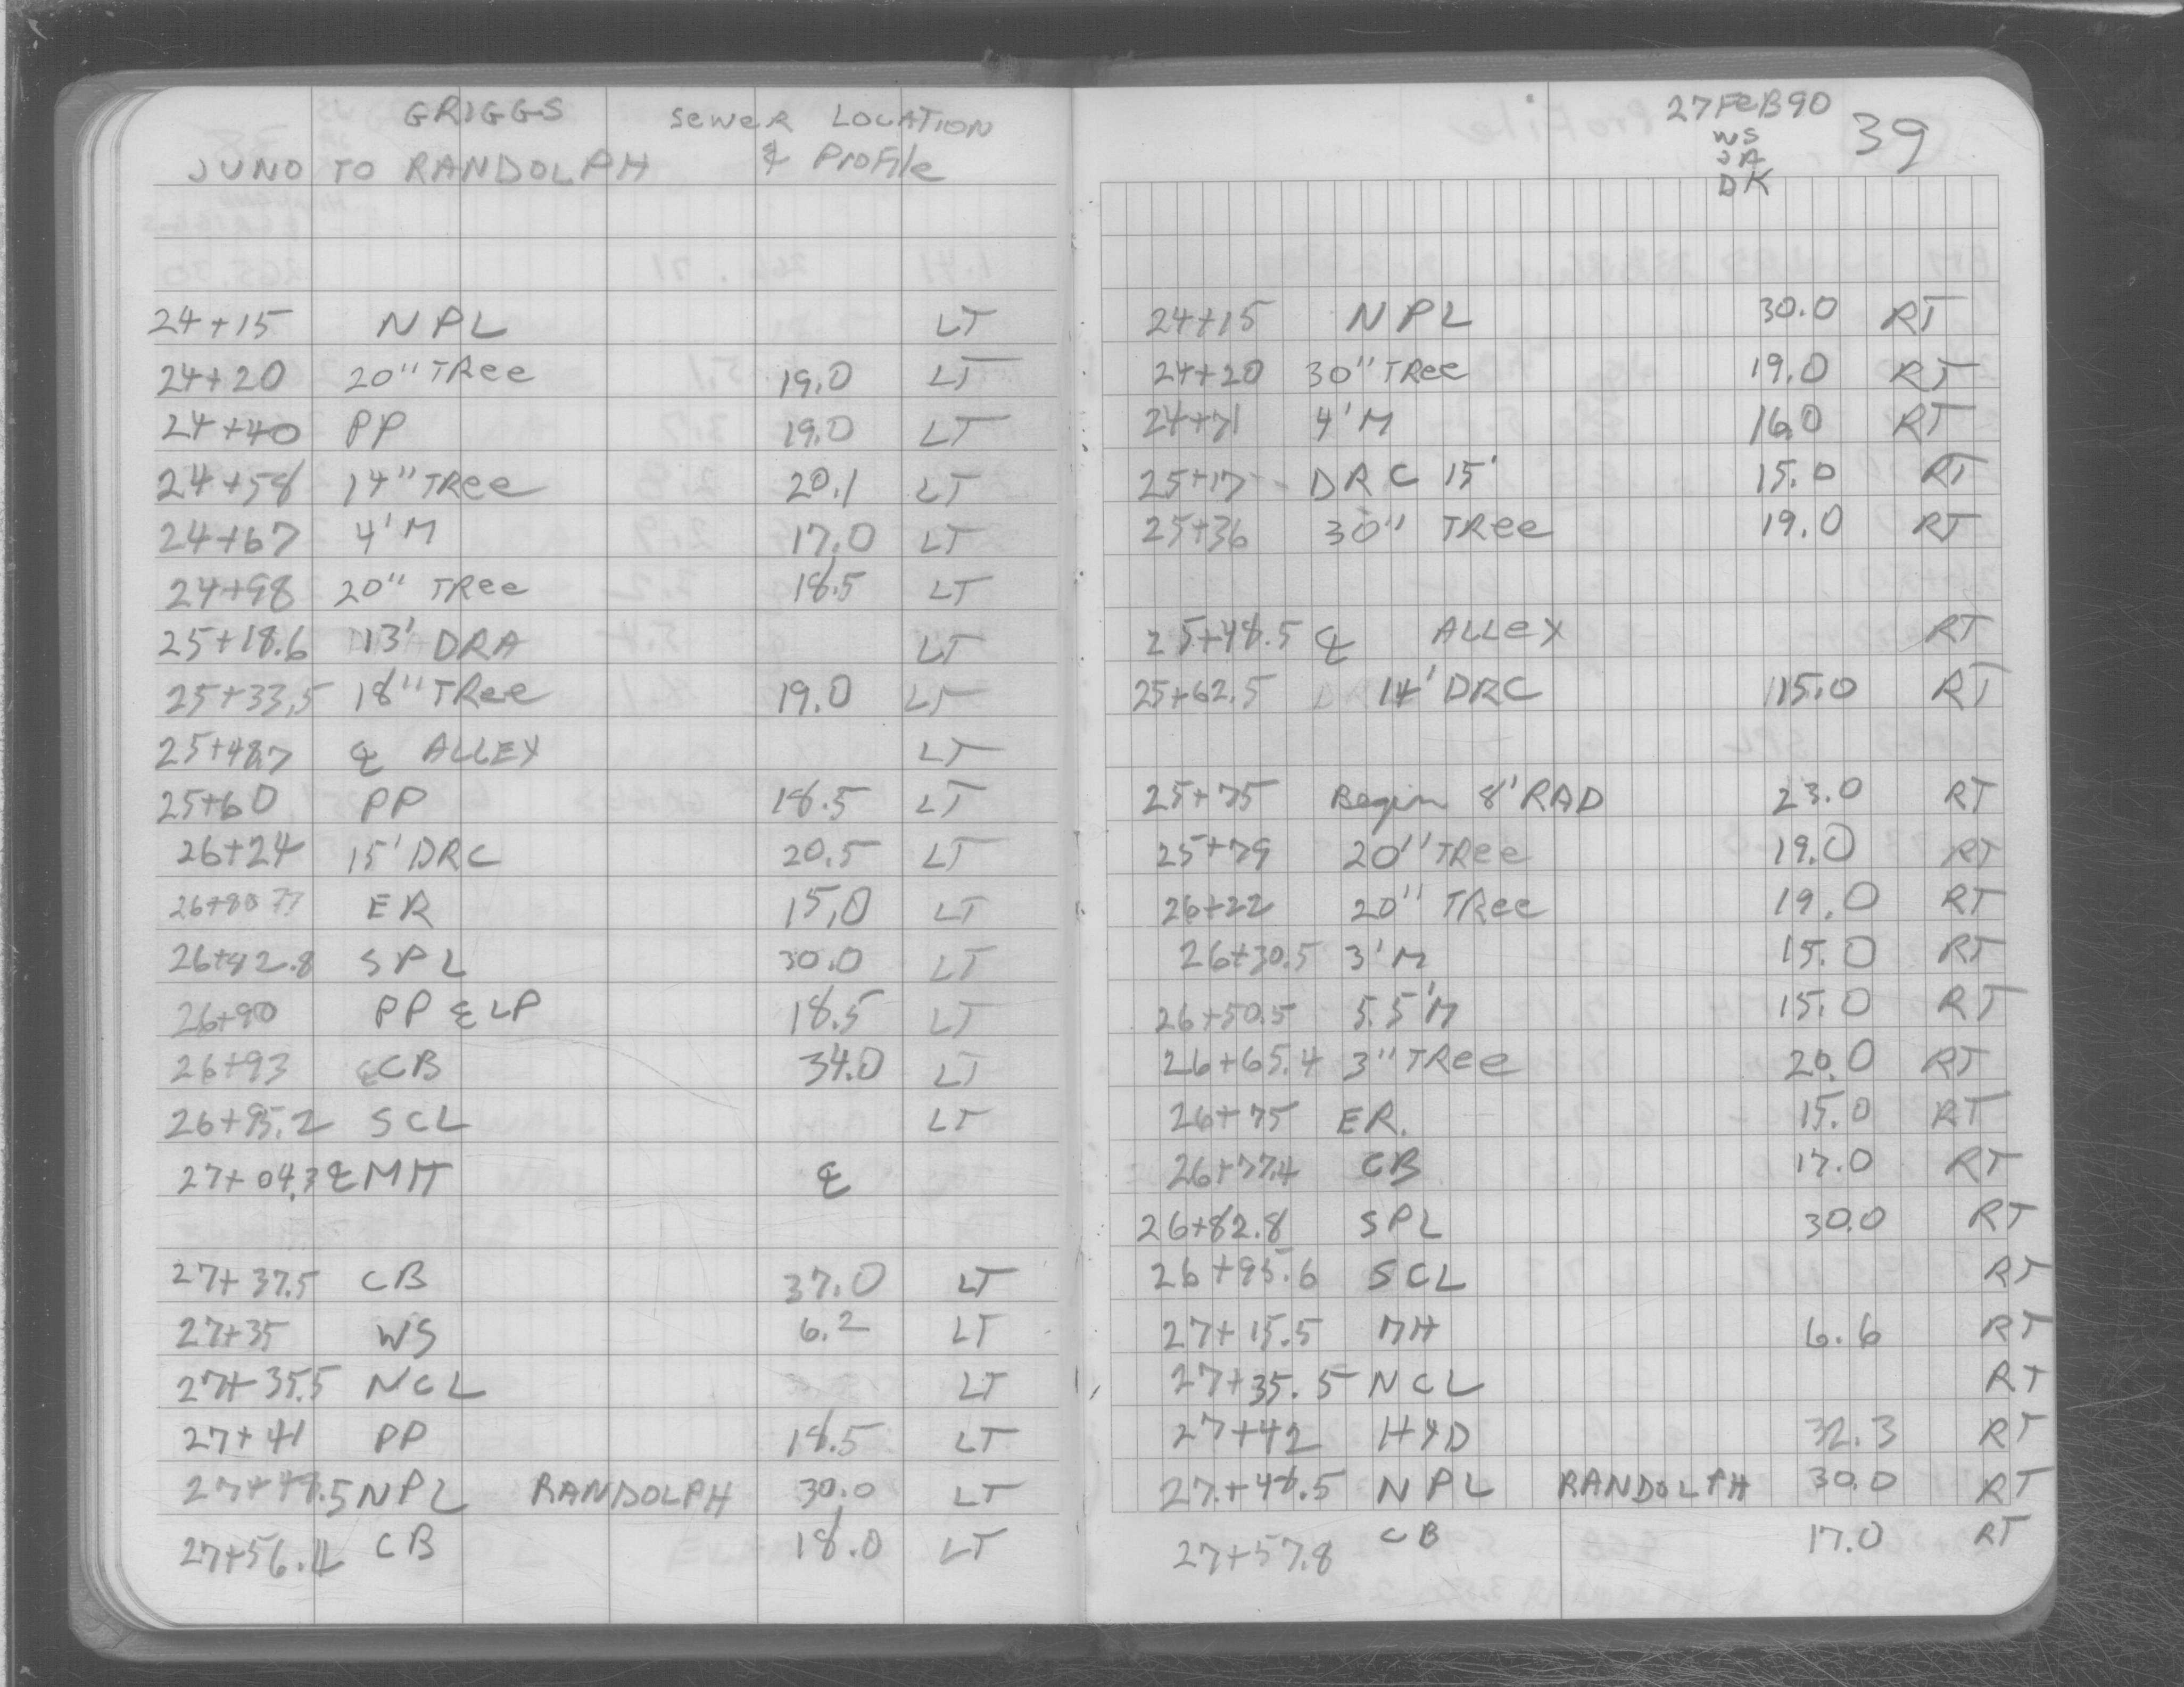 GRIGGS SEWER LOCATION
JUNO TO RANDOLPH & PROFILE
24+15 NPL LT
24+20 20" TRee 19.0 LT
24+40 PP 19.0 LT
24+58 14" TRee 20.1 LT
24+67 4'M 17.0 LT
24+98 20" TRee 18.5 LT
25+18.6 13' DRA LT
25+33.5 18" TRee 19.0 LT
25+48.7 ℄ ALLEY LT
25+60 PP 18.5 LT
26+24 15' DRC 20.5 LT
ER 15.0 LT
26+82.8 SPL 30.0 LT
26+90 PP & LP 18.5 LT
26+93 ℄ CB 34.0 LT
26+95.2 SCL LT
27+04.3 ℄ MH ℄
27+37.5 CB 37.0 LT
27+35 WS 6.2 LT
27+35.5 NCL LT
27+41 PP 18.5 LT
NPL RANDOLPH 30.0 LT
CB 18.0 LT
27FeB90
WS
JA
DK
39
24+15 NPL 30.0 RT
24+20 30" TRee 19.0 RT
24+71 4'M 16.0 RT
25+17 DRC 15' 15.0 RT
25+36 30" TRee 19.0 RT
25+48.5 ℄ ALLEY RT
25+62.5 14' DRC 15.0 RT
25+75 Begin 8' RAD 23.0 RT
25+79 20" TRee 19.0 RT
26+22 20" TRee 19.0 RT
26+30.5 3'M 15.0 RT
26+50.5 5.5'M 15.0 RT
26+65.4 3" TRee 20.0 RT
26+75 ER. 15.0 RT
26+77.4 CB 17.0 RT
26+82.8 SPL 30.0 RT
26+95.6 SCL RT
27+15.5 MH 6.6 RT
27+35.5 NCL RT
27+42 HYD 32.3 RT
27+48.5 NPL RANDOLPH 30.0 RT
27+57.8 CB 17.0 RT